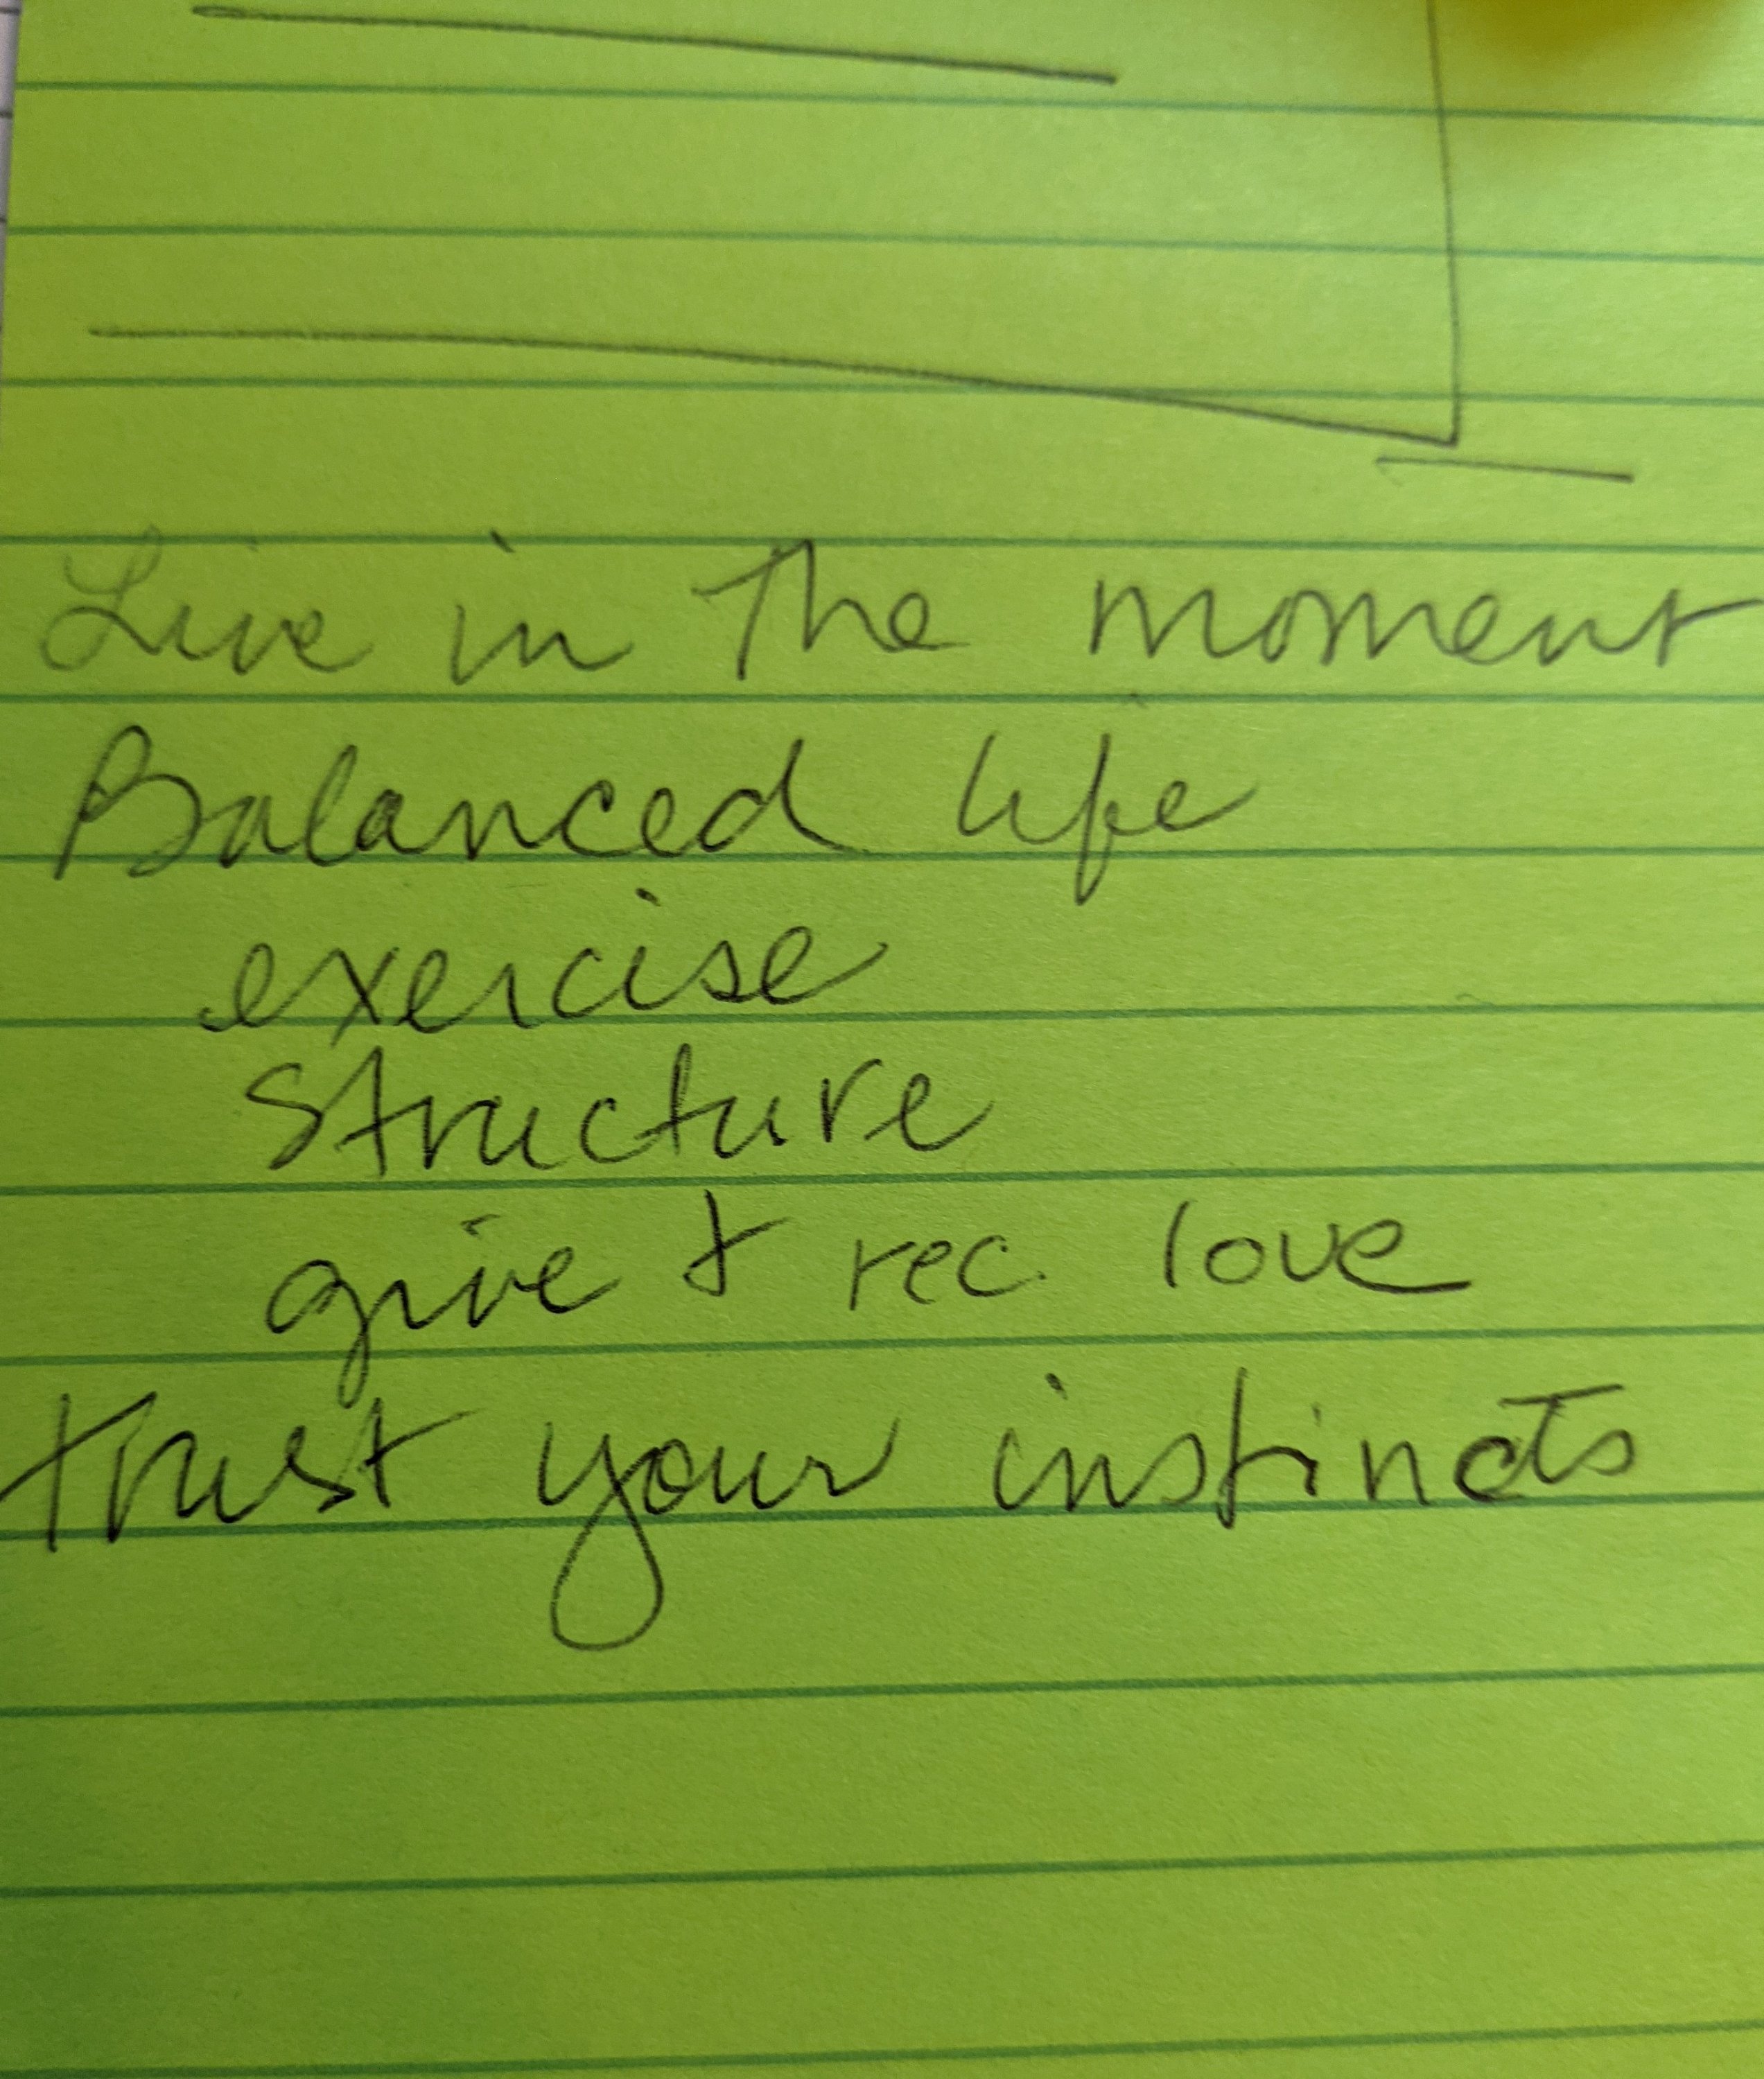 Live in the moment
Balanced life
exercise
structure
give + rec. love
trust your instincts